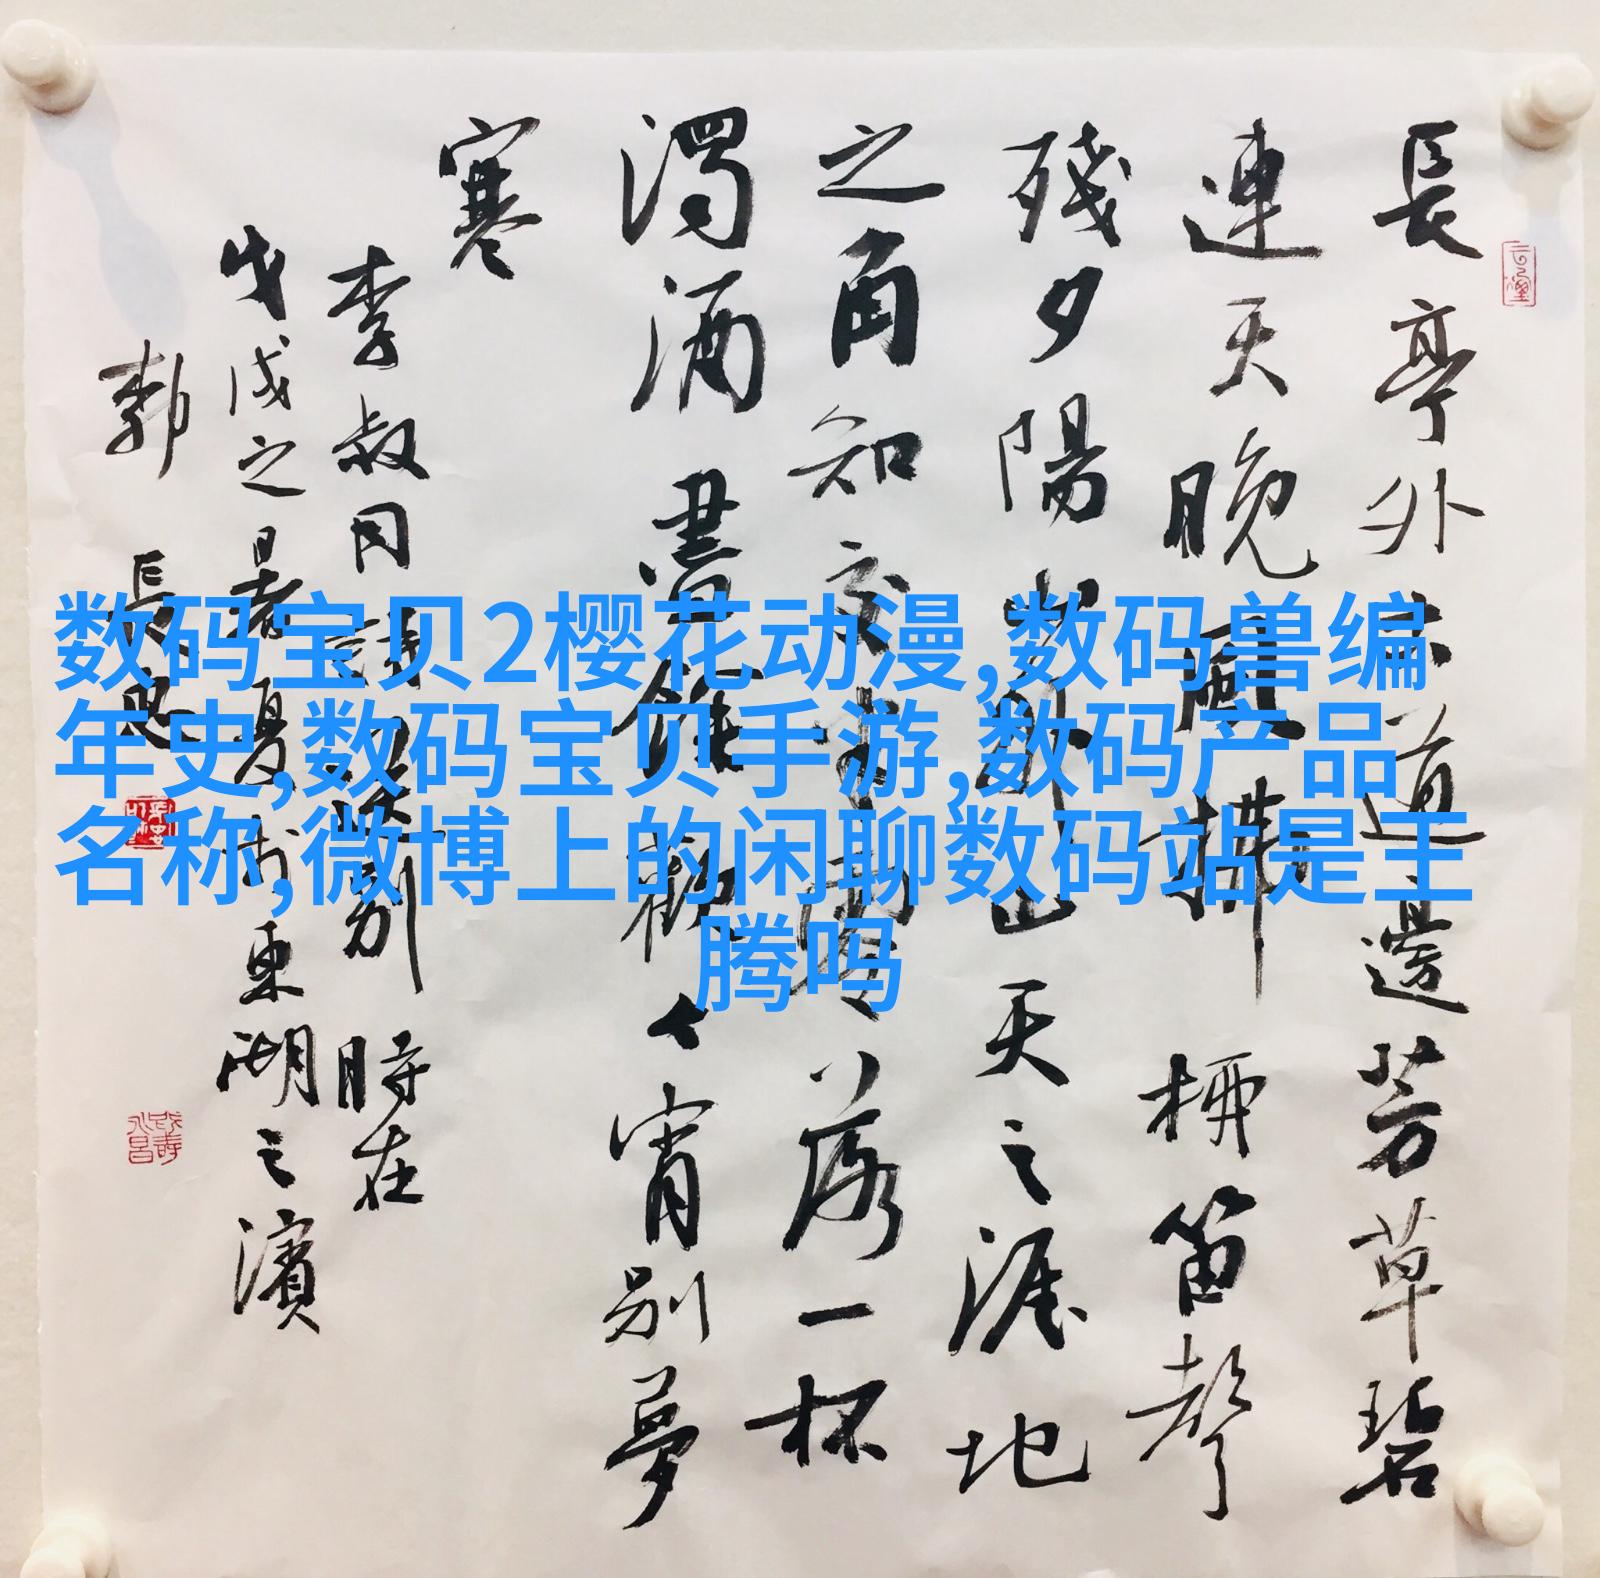 長亭外古道邊芳草碧
連天晚風拂柳笛聲
殘夕陽山外山天之涯地
之角知交半零落一杯
濁酒盡餘歡今宵別夢
寒
李叔同詩送別 時在
戊戌之暑夏於東湖之濱
郭 長
数码宝贝2樱花动漫,数码兽编
年史,数码宝贝手游,数码产品
名称,微博上的闲聊数码站是王
腾吗